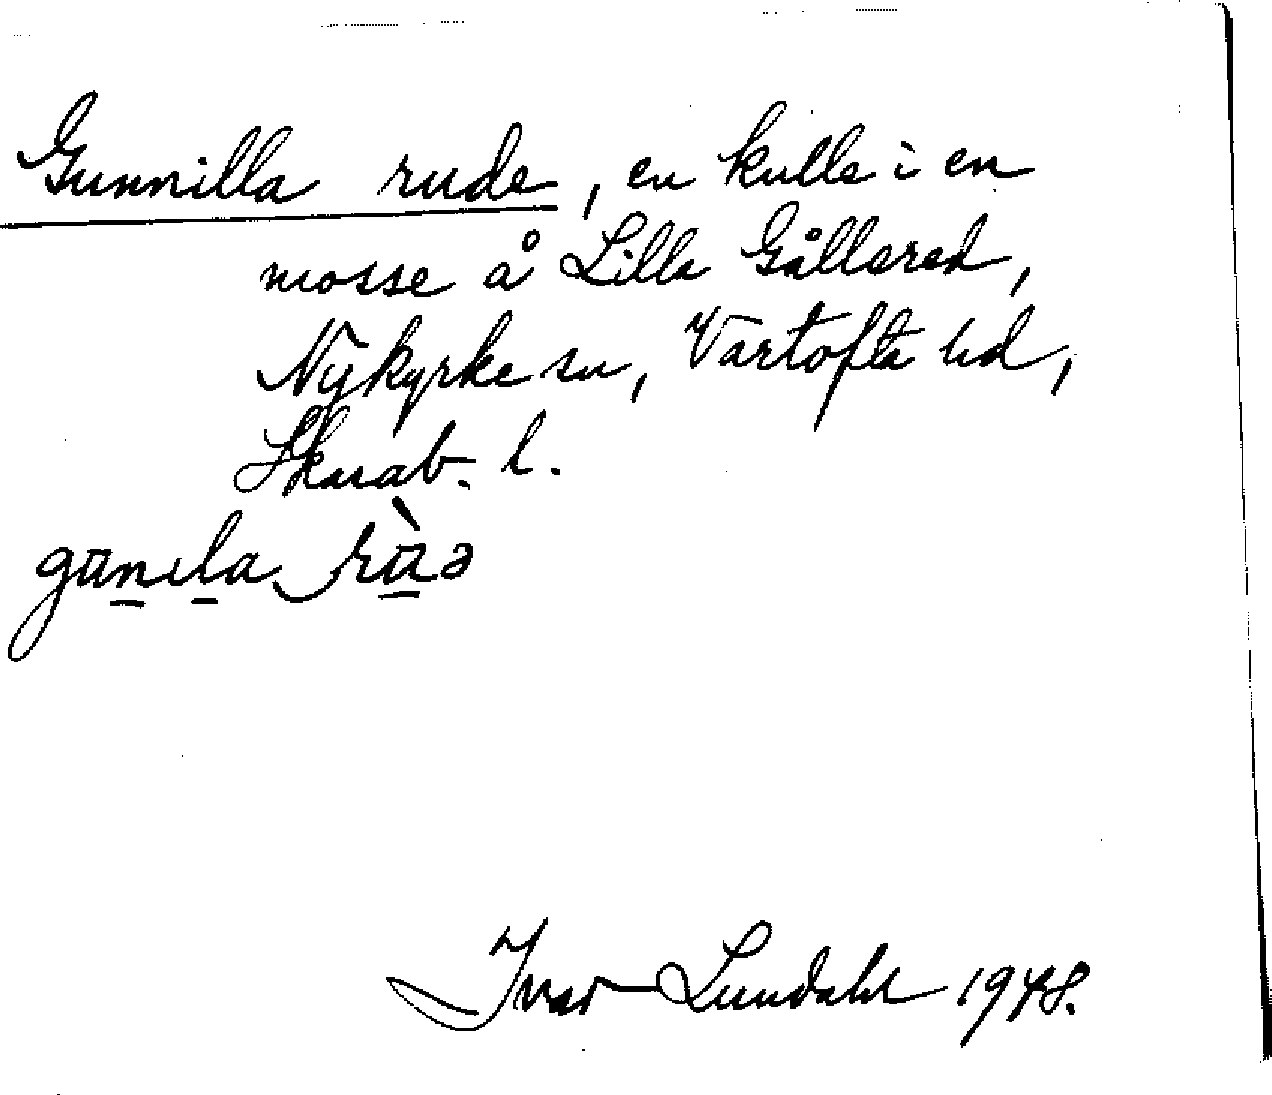 Gunnilla rude, en kulle i en
mosse å Lilla Gållared,
Nykyrke sn, Vartofta hd,
Skarab. l.
Ivar Lundahl 1948.